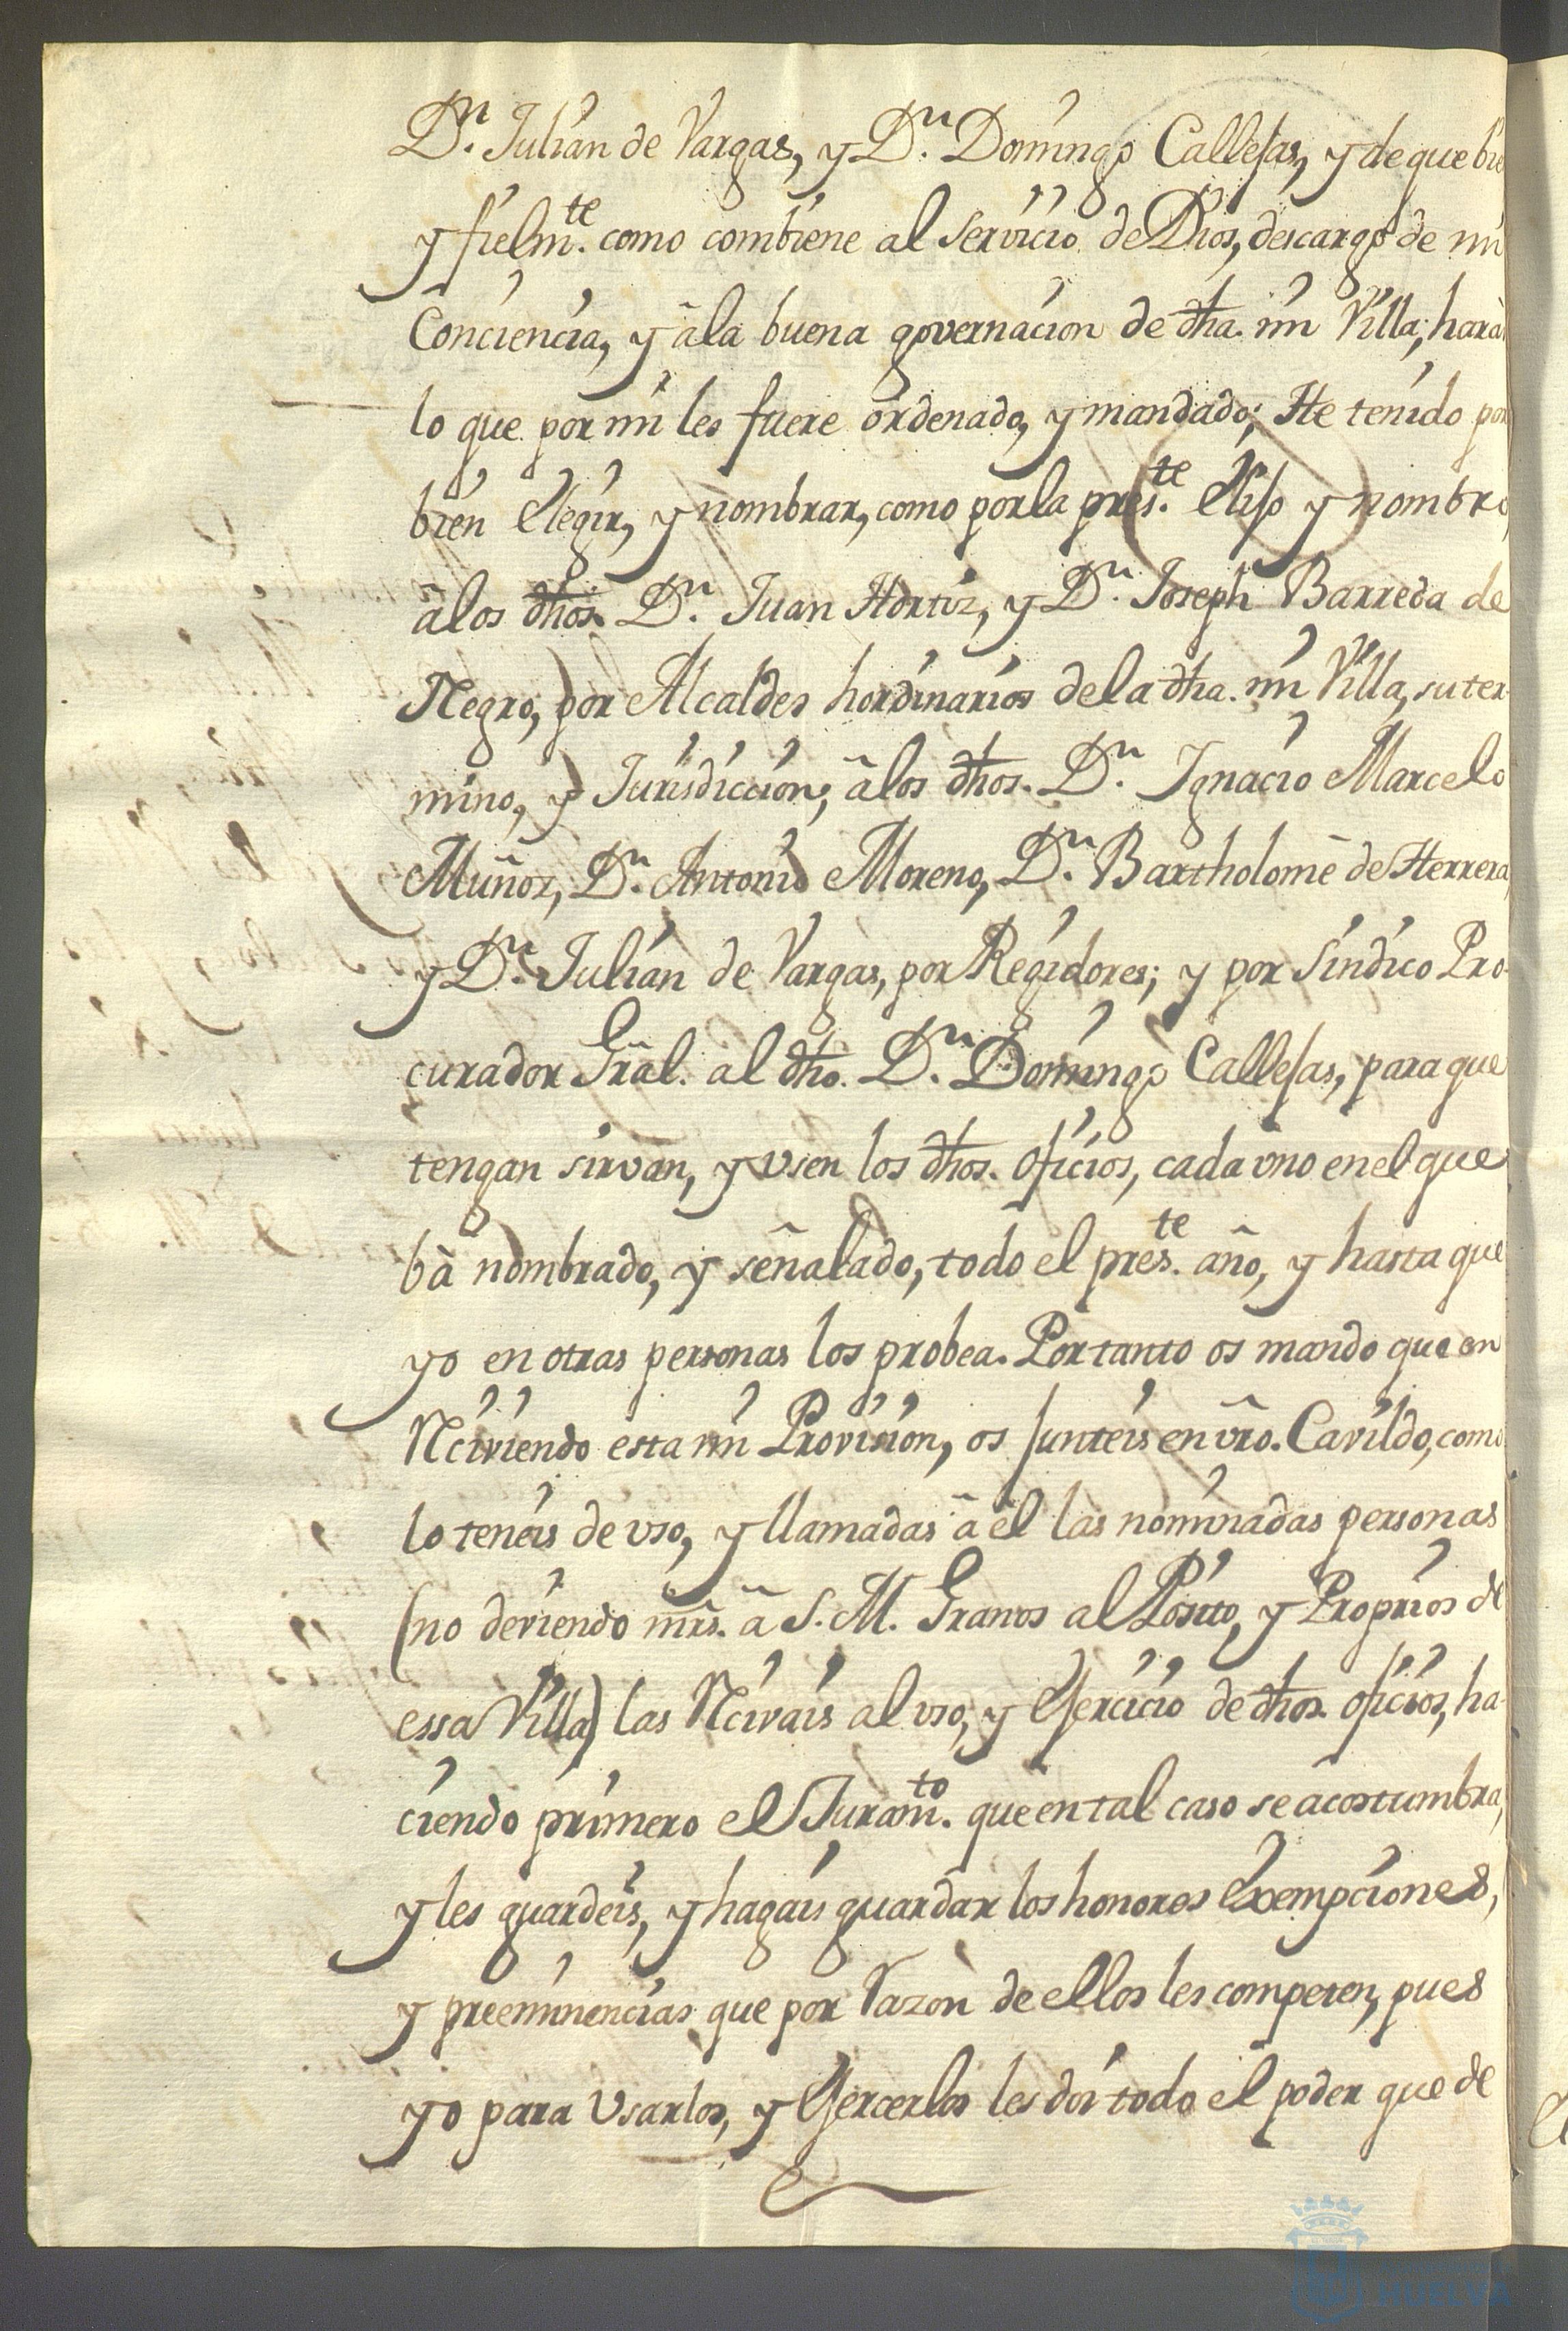 Dn. Julian de Vargas, y Dn. Domingo Callejas, y de que bie
y fielmte. como combiene al servicio de Dios, descargo de mi
Conciencia, y â la buena governacion de dha. mi Villa, hará
lo que por mi les fuere ordenado, y mandado; He tenido por
bien elegir, y nombrar, como por la preste. elijo y nombro,
â los dhos. Dn. Juan Hortiz, y Dn. Joseph Barreda de
Negro, por Alcaldes hordinarios de la dha. mi Villa, su ter-
mino, y Jurisdiccion; â los dhos. Dn. Ignacio Marcelo
Muñoz, Dn. Antonio Moreno, Dn. Bartholomê de Herrera,
y Dn. Julian de Vargas, por Regidores; y por Sindico Pro-
curador Grãl. al dho. Dn. Domingo Callejas, para que
tengan sirvan, y vsen los dhos. Oficios, cada vno en el que
bâ nombrado, y señalado, todo el preste. año, y hasta que
yo en otras personas los probea. Por tanto os mando que en
Rciviendo esta mi Provision, os junteis en vrõ. Cavildo, como
lo teneis de vso, y llamadas â êl las nominadas personas
(no deviendo mrs̃. â S. M. Granos al Pósito, y Proprios de
essa Villa) las Rcivais al vso, y Ejercicio de dhos. oficios, ha-
ciendo primero el Juramto. que en tal caso se acostumbra,
y les guardeis, y hagais guardar los honores Exempciones,
y preeminencias que por razon de ellos les competen, pues
yo para Vsarlos, y Ejercerlos les doi todo el poder que de
HUELVA